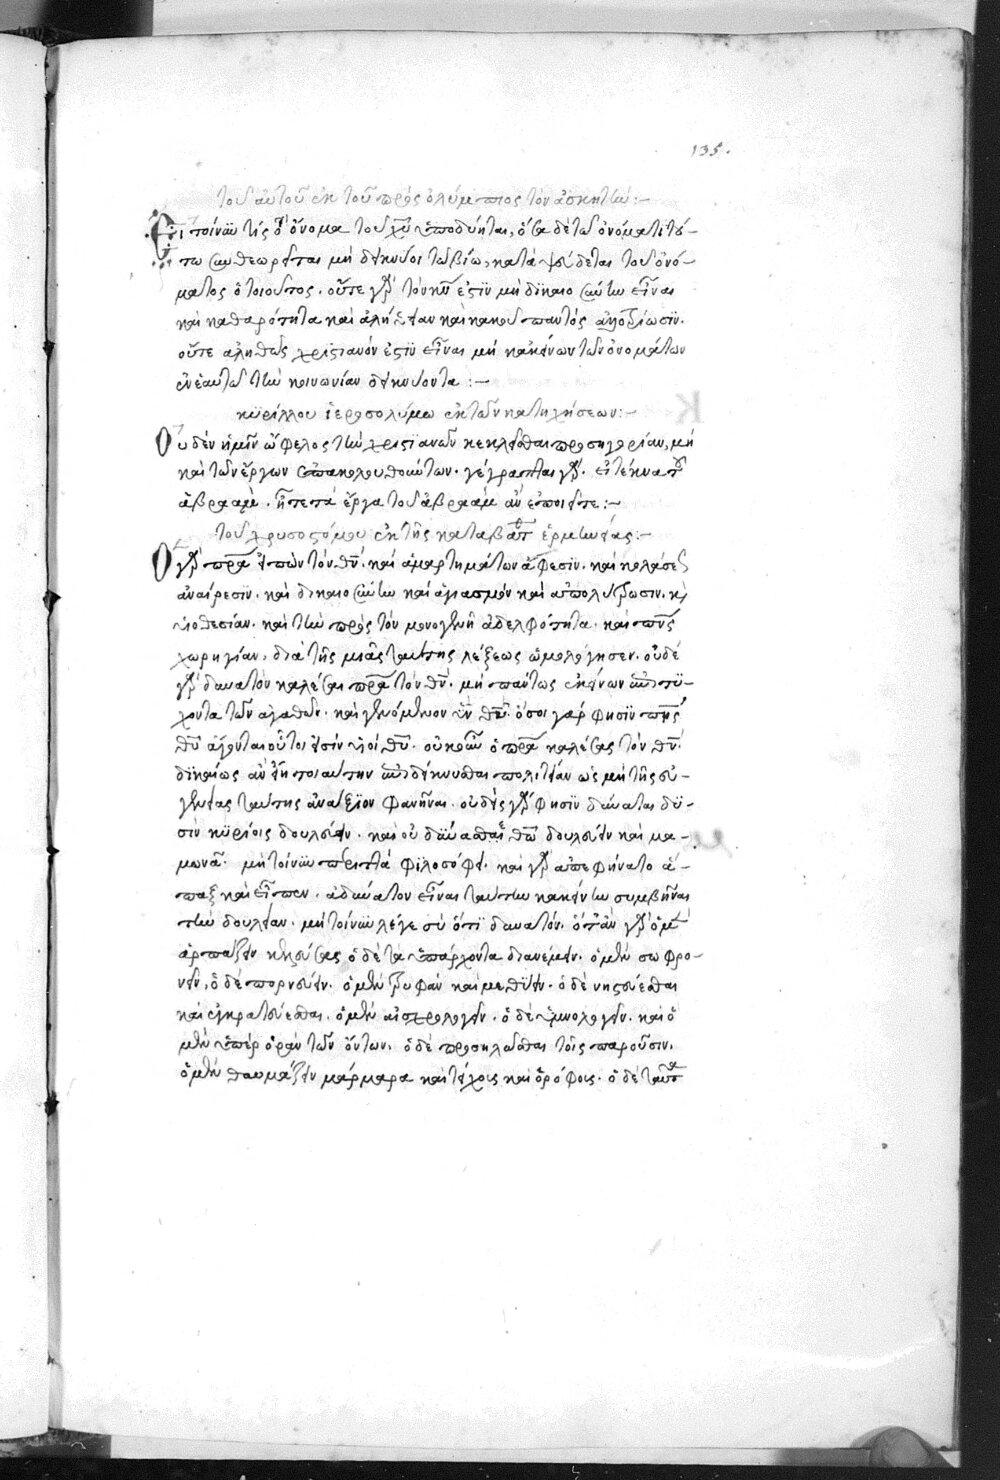 135.
τοῦ αὐτοῦ ἐκ τοῦ πρὸς ὀλύμπιος τὸν ἀσκητήν :–
Εἴ τοίνυν τίς τὸ ὄνομα τοῦ χυ ὑποδύηται, ὅσα δὲ τῶ ὀνόματι τού–
τω συνθεωρεῖται μὴ δεικνύοι τῶ βίω, καταψεύδεται τοῦ ὀνό–
ματος ὁ τοιοῦτος. οὔτε γὰρ τὸν κν ἐστϊν μὴ δϊκαιοσύνην εἶναι
καὶ καθαρότητα καὶ ἀλήθειαν καὶ κακοῦ παντὸς ἀλλοτρίωσϊν.
οὔτε ἀληθῶς χριστιανόν ἐστϊν εἶναι μὴ κἀκείνων τῶν ὀνομάτων
ἐν ἑαυτῶ τὴν κοινωνίαν δεικνύοντα :–
κϋρίλλου ἱεροσολύμων ἐκ τῶν κατηχήσεων :–
Οὐδὲν ἡμῖν ὄφελος τὴν χριστϊανῶν κεκλεῖσθαι προσηγορίαν, μὴ
καὶ τῶν ἔργων ἐπακολουθούντων. γέγραπται γὰρ. εἰ τέκνα τοῦ
ἀβραὰμ ἦτε τὰ ἔργα τοῦ ἀβραὰμ ἂν ἐποιεῖτε :–
τοῦ χρυσοστόμου ἐκ τῆς κατα ἑρμηνείας :–
Ὁ γὰρ πρα εἰπὼν τὸν θν. καὶ ἁμαρτημάτων ἄφεσϊν. καὶ κολάσεως
ἀναίρεσϊν. καὶ δικαιοσύνην καὶ ἁγιασμὸν καὶ ἀπολύτρωσιν. κ
υἱοθεσίαν. καὶ τὴν πρὸς τὸν μονογενῆ ἀδελφότητα. καὶ πνς
χωρηγίαν, διὰ τῆς μιᾶς ταύτης λέξεως ὡμολόγησεν. οὐδὲ
γὰρ δυνατὸν καλέσαι πρα τὸν θν. μὴ πάντως ἐκείνων ἐπιτϋ–
χόντα τῶν ἀγαθῶν. καὶ γενόμενον υν θυ. ὅσοι γάρ φησϊν πνι
θυ ἄγονται οὗτοι εἰσὶν υἱοὶ θυ. οὐκοῦν ὁ πρα καλέσας τὸν θν.
δϊκαίως ἂν εἴη τοιαύτην ἐπιδείκνυσθαι πολιτείαν ὡς μὴ τῆς εὐ–
γενείας ταύτης ἀνάξϊον φανῆναι. οὐδεὶς γὰρ φησϊν δύναται δϋ–
σϊν κϋρίοις δουλεύειν. καὶ οὐ δύνασθαι θω δουλεύειν καὶ μα–
μωνᾶ. μὴ τοίνυν περιττὰ φϊλοσόφει. καὶ γὰρ ἀπεφήνατο ἅ–
παξ καὶ εἶπεν. ἀδύνατον εἶναι ταύτην κἀκείνην συμβῆναι
τὴν δουλείαν. μὴ τοίνυν λέγε σὺ ὅτϊ δυνατόν. ὅταν γὰρ ὁ μὲν
ἁρπάζειν κελεύσας ὁ δὲ τὰ ὑπάρχοντα διανέμειν. ὁ μὲν σωφρο–
νεῖν, ὁ δὲ πορνεύειν. ὁ μὲν τρυφᾶν καὶ μεθϋειν. ὁ δὲ νηστεύεσθαι
καὶ ἐγκρατεύεσθαι. ὁ μὲν αἰσχρολογεῖν. ὁ δὲ ὑμνολογεῖν. καὶ ὁ
μὲν ὑπερορᾶν τῶν ὄντων. ὁ δὲ προσηλοῦσθαι τοῖς παροῦσιν.
ὁ μὲν θαυμάζειν μάρμαρα καὶ τείχοις καὶ ὀρόφοις. ὁ δὲ ταῦτα